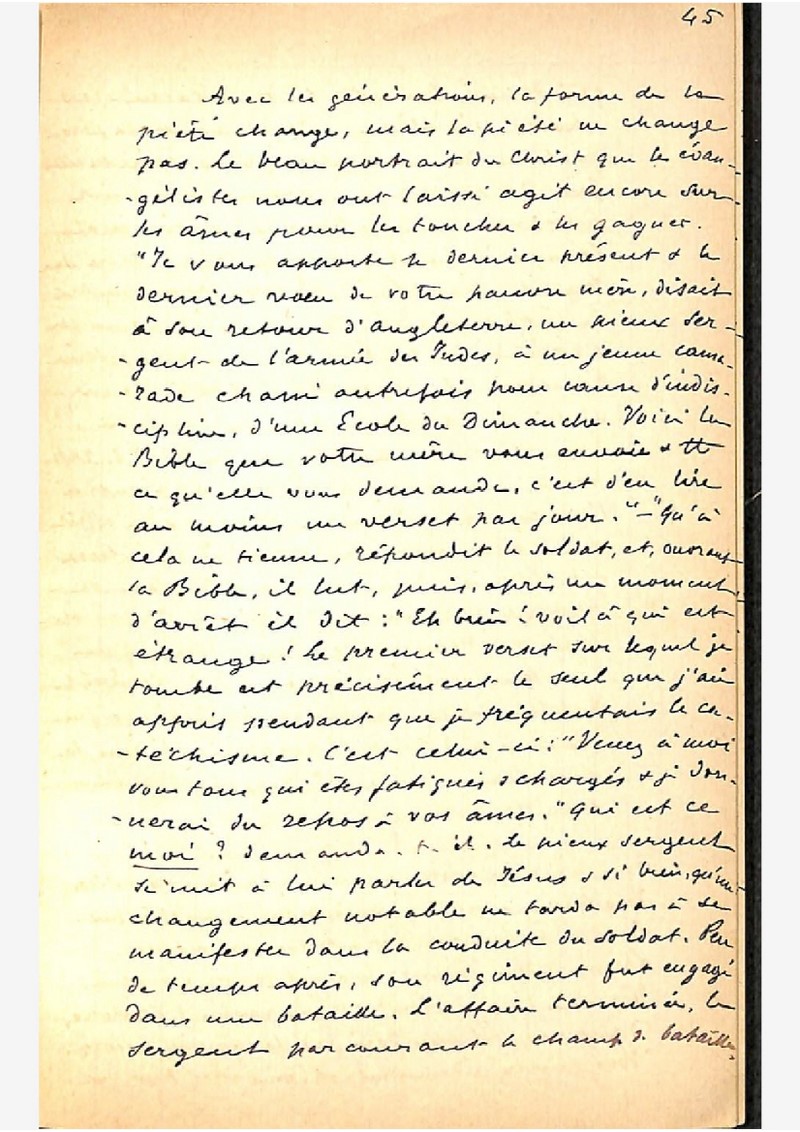 45
Avec les générations, la forme de la
piété change, mais la piété ne change
pas. Le beau portrait du Christ que les évan-
-gélistes nous ont laissé agit encore sur
les âmes pour les toucher & les gagner.
"Je vous apporte le dernier présent & le
dernier voeu de votre pauvre mère, disait
à son retour d'Angleterre, un pieux ser-
-gent de l'armée des Indes, à un jeune cama-
-rade chassé autrefois pour cause d'indis-
-cipline, d'une Ecole du Dimanche. Voici la
Bible que votre mère vous envoie & tt
ce qu'elle vous demande, c'est d'en lire
au moins un verset par jour." – "Qu'à
cela ne tienne, répondit le soldat, et, ouvrant
la Bible, il lut, puis, après un moment
d'arrêt il dit : "Eh bien ! voilà qui est
étrange ! Le premier verset sur lequel je
tombe est précisément le seul que j'aie
appris pendant que je fréquentais le ca-
-téchisme. C'est celui-ci : "Venez à moi
vous tous qui êtes fatigués & chargés & je don-
-nerai du repos à vos âmes." Qui est ce
moi ? demanda-t-il. Le pieux sergent
se mit à lui parler de Jésus & si bien, qu'un
changement notable ne tarda pas à se
manifester dans la conduite du soldat. Peu
de temps après, son régiment fut engagé
dans une bataille. L'affaire terminée, le
sergent parcourant le champ de bataille,